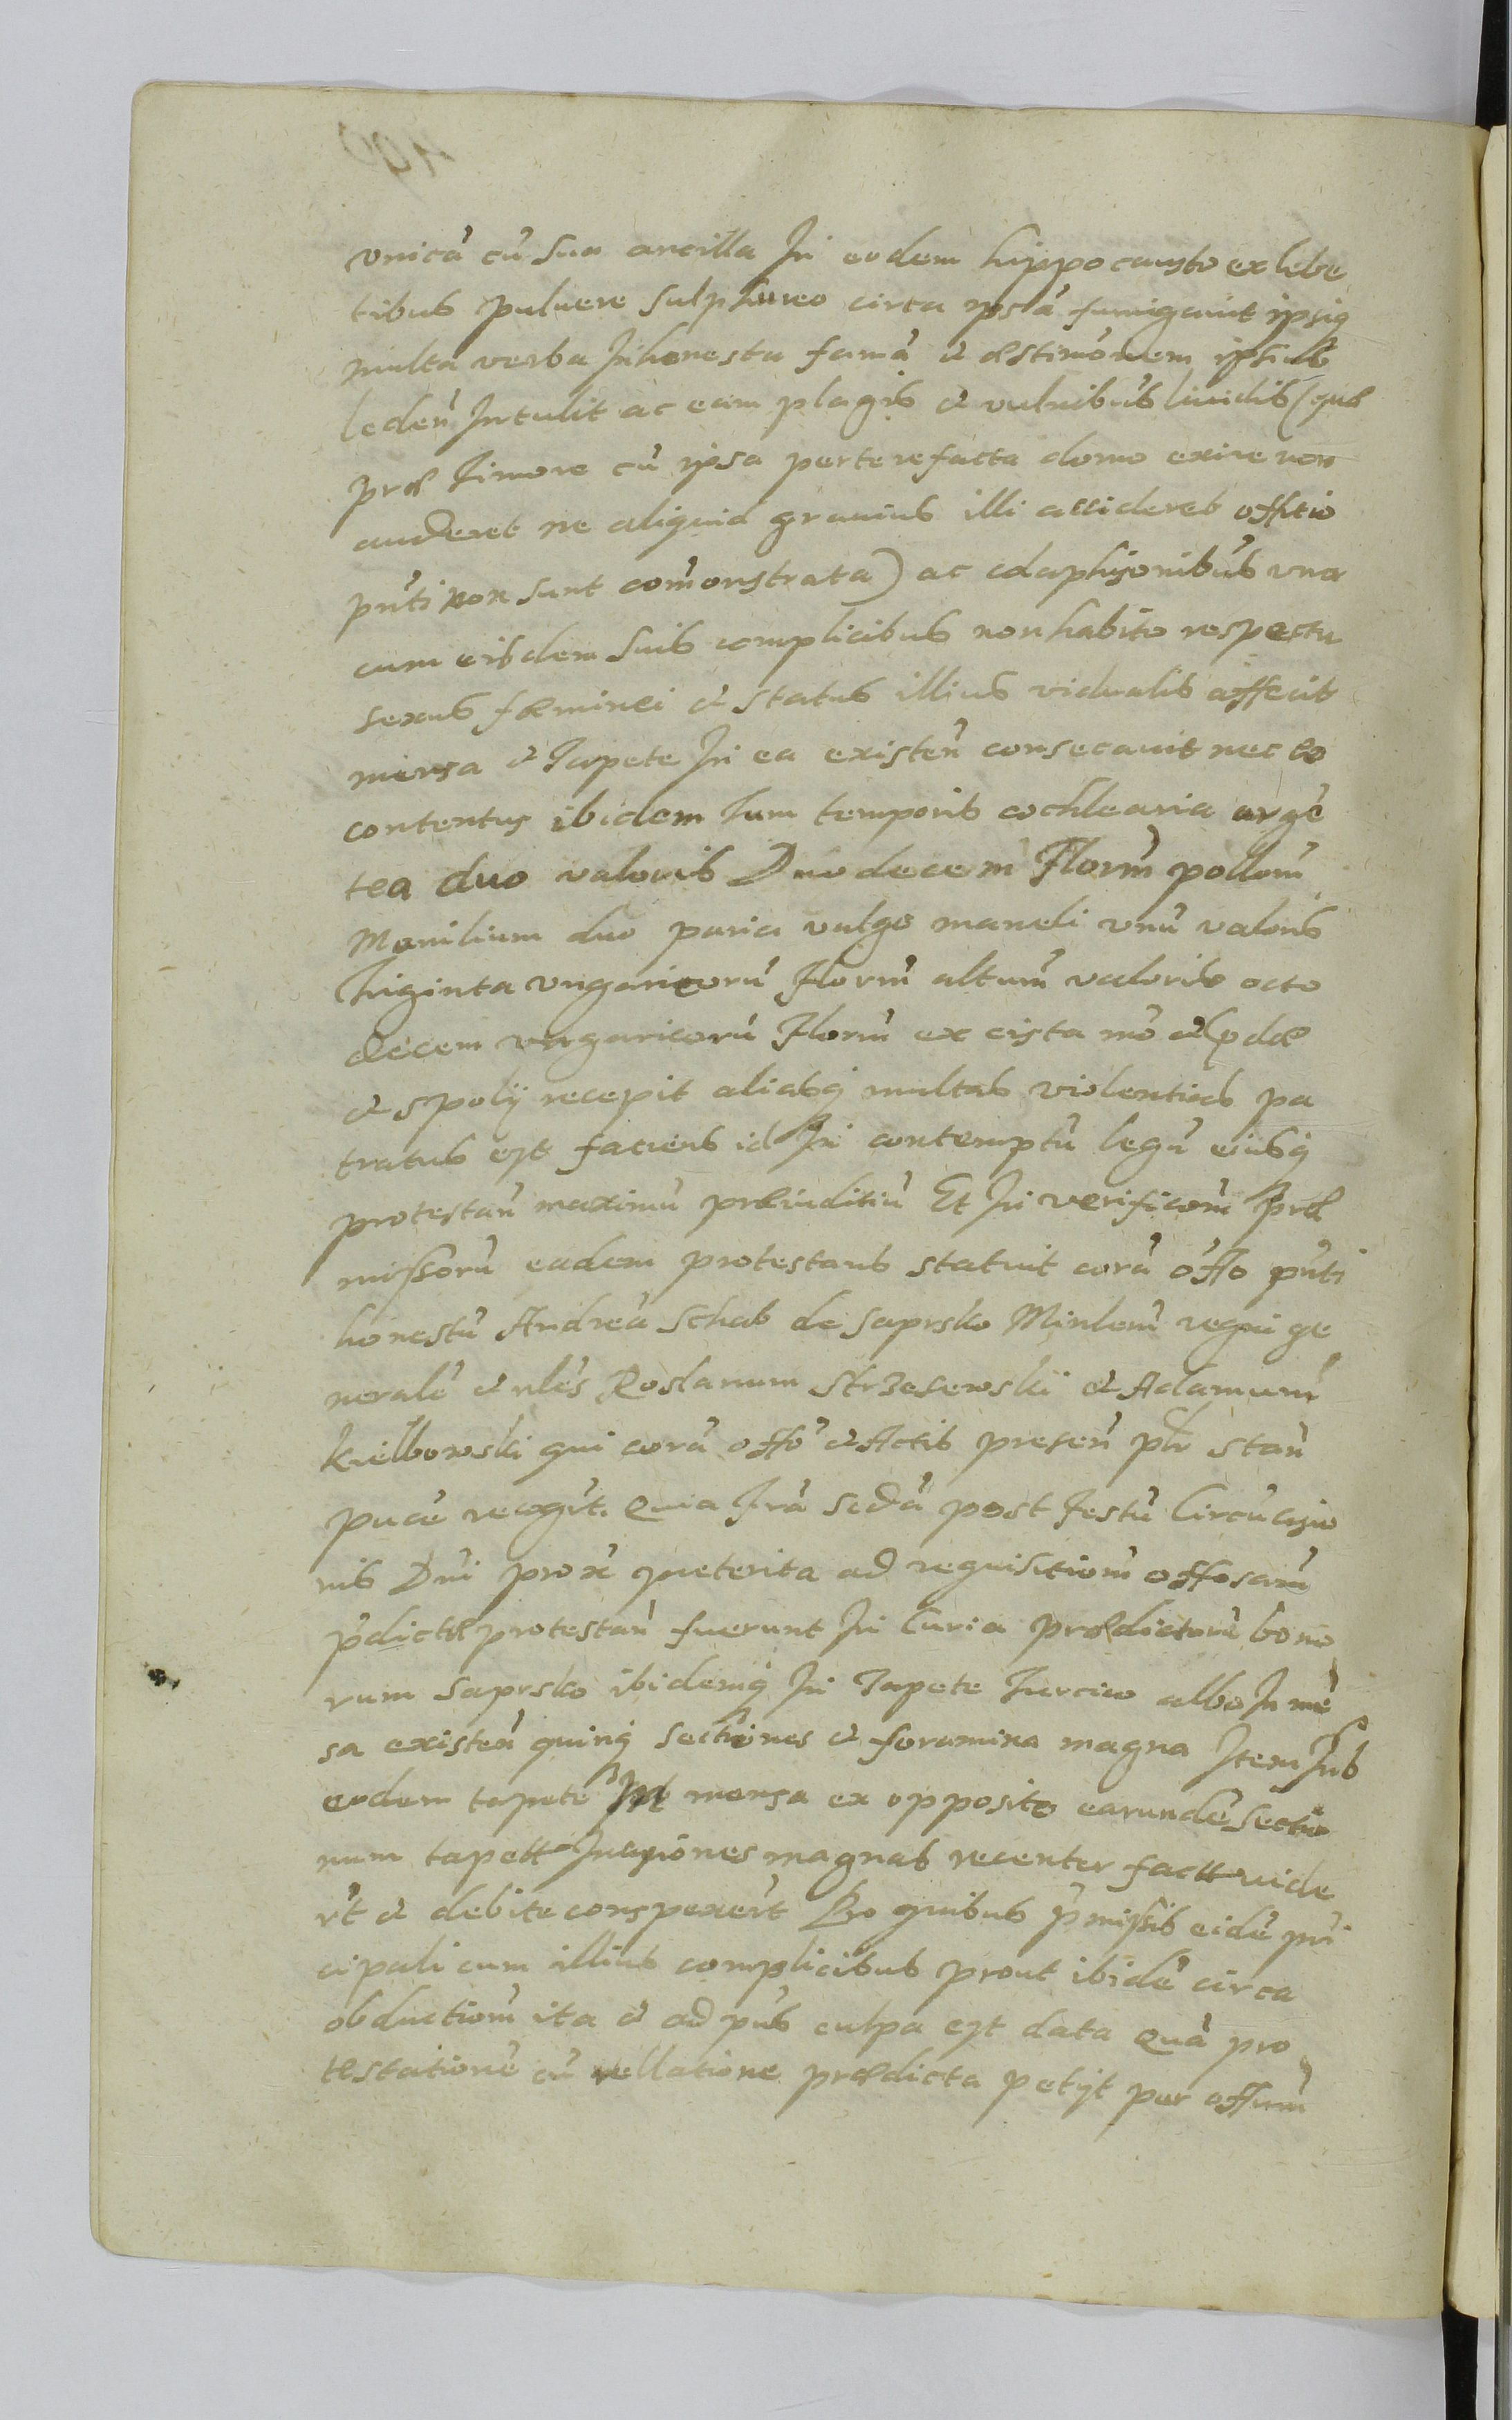 vnicā cū sua ancilla In eodem hippocausto ex lebe
tibus puluere sulphureo circa ipsā fumigauit ipsiq
multa verba Inhonesta famā et æstimōnem ipsius
leden̄ Intulit ac eam plagis et vulnibus liuidis (quæ
præ Timore cū ipsa perterefacta domo exire non
auderet ne aliquid grauius illi accideret offitio
pn̄ti non sunt com̄onstrata) ac colaphisionibus vna
cum eisdem suis complicibus non habito respectu
sexus fæminei et status illius vidualis affecit
mensa et Tapete In ea existen̄ consecauit nec eo
contentus ibidem Tum temporis cochlearia argē
tea duo valoris Duodecem Florn̄ pollom̄
Monilium duo paria vulgo maneli vnū valoris
Triginta vngaricorū Florn̄ altum̄ valoris octo
decem vngaricorū Florn̄ ex cista mō prædæ
et spolij recepit aliasq multas violentias pa
tratus est faciens id In contemptū legū eiusq
protestan̄ maximū præiuditiū Et In verificom̄ præ
missorū eadem protestans statuit corā offo pn̄ti
honestū Andreā Schab de Saprsko Minlem̄ regni ge
neralē et nlēs Roslanum Strzesewskij et Adamum
Kielbowski qui corā offo et Actis presen̄ plr stan̄
puce recogt. Quia Frā scdā post Festū Circūcisio
nis Dn̄i prox̄ preterita ad requisitiom̄ offosam̄
p̄dictæ protestan̄ fuerunt In Curia prædictorū bono
rum Saprsko ibidemq In Tapete Turcico albo In mē
sa existen̄ quinq sectiones et foramina magna Item Sub
eodem tapete In mensa ex opposito earundē sectio
num tapett Incisiones magnas recenter factt vide
rt̄ et debite conspexert̄ Pro quibus p̄missis eidē prī
cipali cum illius complicibus prout ibidē circa
obductiom̄ ita et ad pn̄s culpa est data Quā pro
testationē cū rellatione prædicta petijt per offium̄